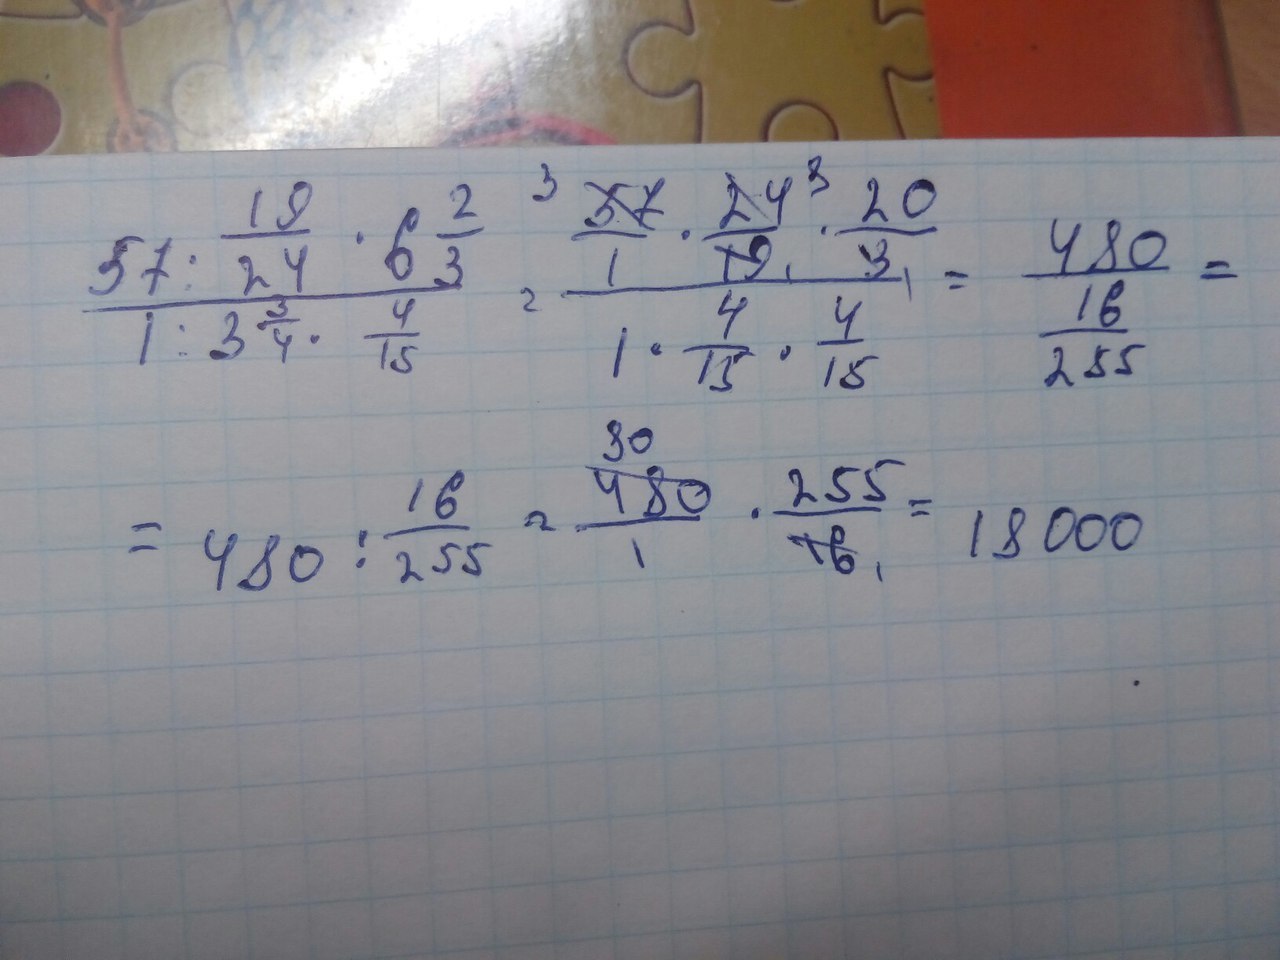 (57 : 19/24 · 6 2/3) / (1 : 3 3/4 · 4/15) = (57/1 · 24/19 · 20/3) / (1 · 4/15 · 4/15) = 480 / (16/255) =
= 480 : 16/255 = 480/1 · 255/16 = 18000